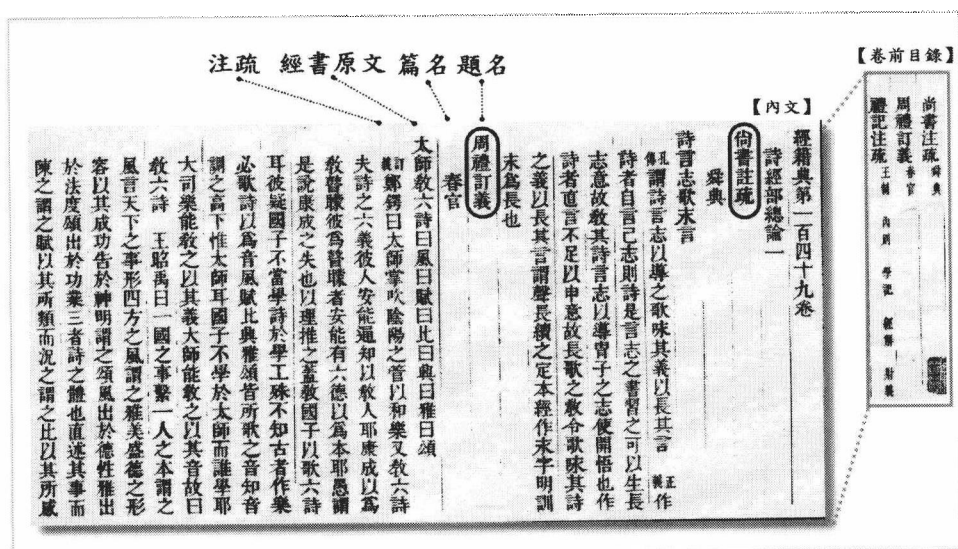 注疏 經書原文 篇名 題名
【卷前目錄】
尚書注疏 舜典
周禮訂義 春官
禮記注疏 王制 內則 學記 經解 射義
【內文】
經籍典第一百四十九卷
詩經部總論一
尚書註疏
舜典
詩言志歌永言
孔傳 謂詩言志以導之歌咏其義以長其言 正義 作
詩者自言己志則詩是言志之書習之可以生長
志意故敎其詩言志以導胄子之志使開悟也作
詩者直言不足以申意故長歌之敎令歌咏其詩
之義以長其言謂聲長續之定本經作永字明訓
永爲長也
周禮訂義
春官
太師敎六詩曰風曰賦曰比曰興曰雅曰頌
訂義 鄭鍔曰太師掌吹陰陽之管以和樂又敎六詩
夫詩之六義彼人安能遍知以敎人耶康成以爲
敎瞽矇彼爲瞽矇者安能有六德以爲本耶愚謂
是說康成之失也以理推之蓋敎國子以歌六詩
耳彼疑國子不當學詩於學工殊不知古者作樂
必歌詩以爲音風賦比興雅頌皆所歌之音知音
調之高下惟太師耳國子不學於太師而誰學耶
大司樂能敎之以其義大師能敎之以其音故曰
敎六詩 王昭禹曰一國之事繫一人之本謂之
風言天下之事形四方之風謂之雅美盛德之形
容以其成功告於神明謂之頌風出於德性雅出
於法度頌出於功業三者詩之體也直述其事而
陳之謂之賦以其所類而況之謂之比以其所感